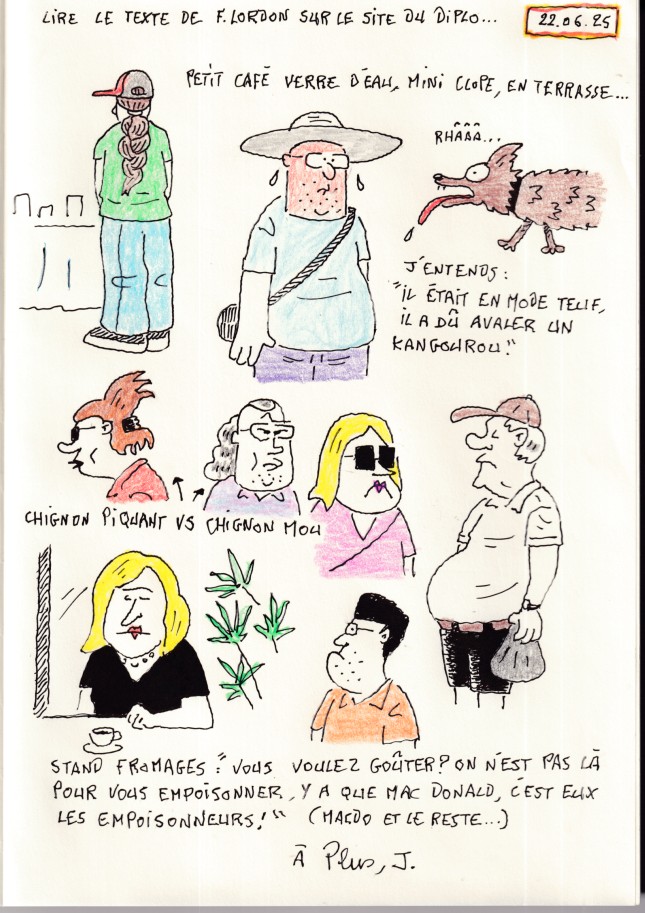 LIRE LE TEXTE DE F. LORDON SUR LE SITE DU DIPLO...
22.06.25
PETIT CAFÉ VERRE D'EAU, MINI CLOPE, EN TERRASSE...
RHÂÂÂ...
J'ENTENDS :
"IL ÉTAIT EN MODE TEUF,
IL A DÛ AVALER UN
KANGOUROU."
CHIGNON PIQUANT VS CHIGNON MOU
STAND FROMAGES : "VOUS VOULEZ GOÛTER ? ON N'EST PAS LÀ
POUR VOUS EMPOISONNER, Y A QUE MAC DONALD, C'EST EUX
LES EMPOISONNEURS !" (MACDO ET LE RESTE...)
À Plus, J.